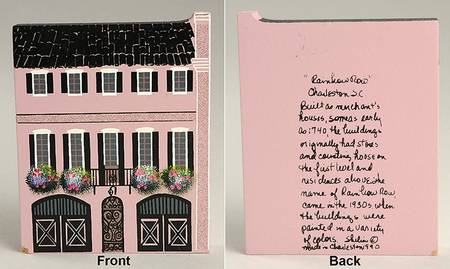 "Rainbow Row"
Charleston S.C
Built as merchant's
houses, some as early
as 1740, the buildings
originally had stores
and counting houses on
the first level and
residences above. The
name of Rainbow Row
came in the 1930s when
the buildings were
painted in a variety
of colors. Shelia ©
made in Charleston 1990
Front
Back